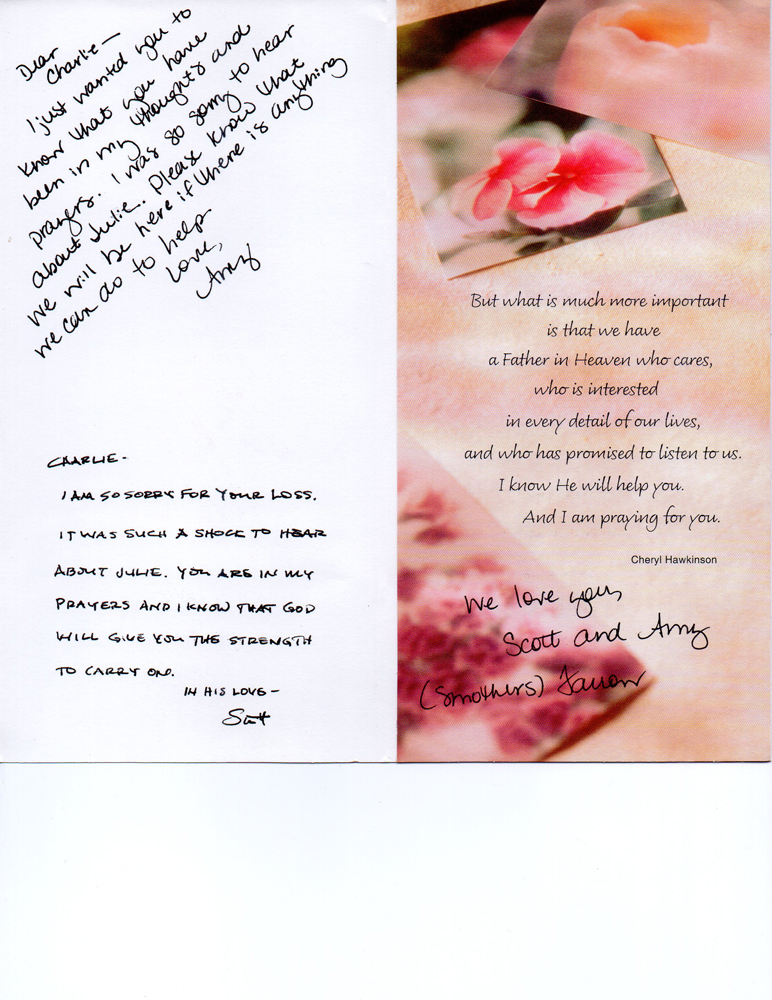 Dear
Charlie—
I just wanted you to
know that you have
been in my thoughts and
prayers. I was so sorry to hear
about Julie. Please know that
we will be here if there is anything
we can do to help
Love,
Amy
CHARLIE-
I AM SO SORRY FOR YOUR LOSS.
IT WAS SUCH A SHOCK TO HEAR
ABOUT JULIE. YOU ARE IN MY
PRAYERS AND I KNOW THAT GOD
WILL GIVE YOU THE STRENGTH
TO CARRY ON.
IN HIS LOVE-
Scott
But what is much more important
is that we have
a Father in Heaven who cares,
who is interested
in every detail of our lives,
and who has promised to listen to us.
I know He will help you.
And I am praying for you.
Cheryl Hawkinson
We love you,
Scott and Amy
(Smothers)